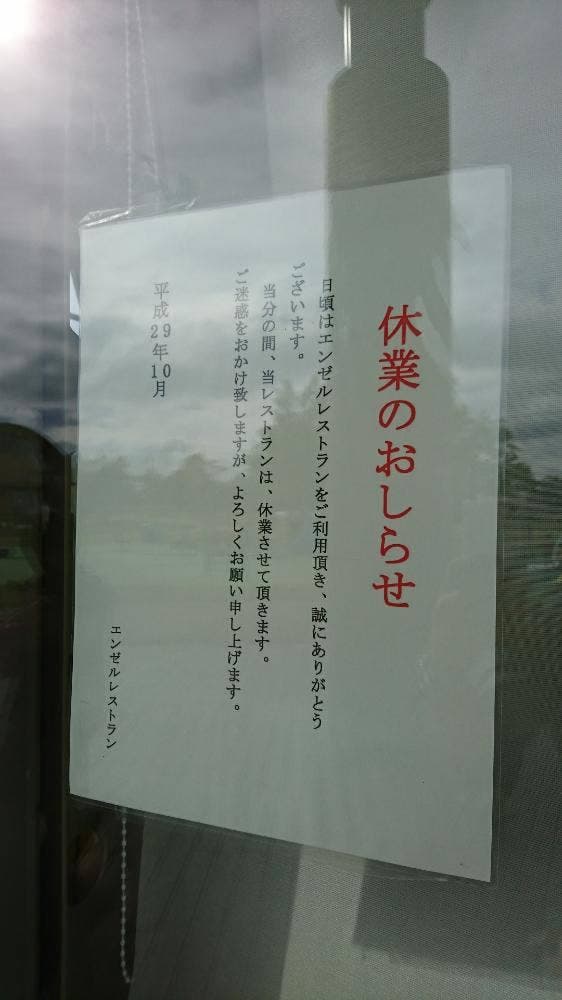 休業のおしらせ
日頃はエンゼルレストランをご利用頂き、誠にありがとう
ございます。
当分の間、当レストランは、休業させて頂きます。
ご迷惑をおかけ致しますが、よろしくお願い申し上げます。
平成29年10月
エンゼルレストラン